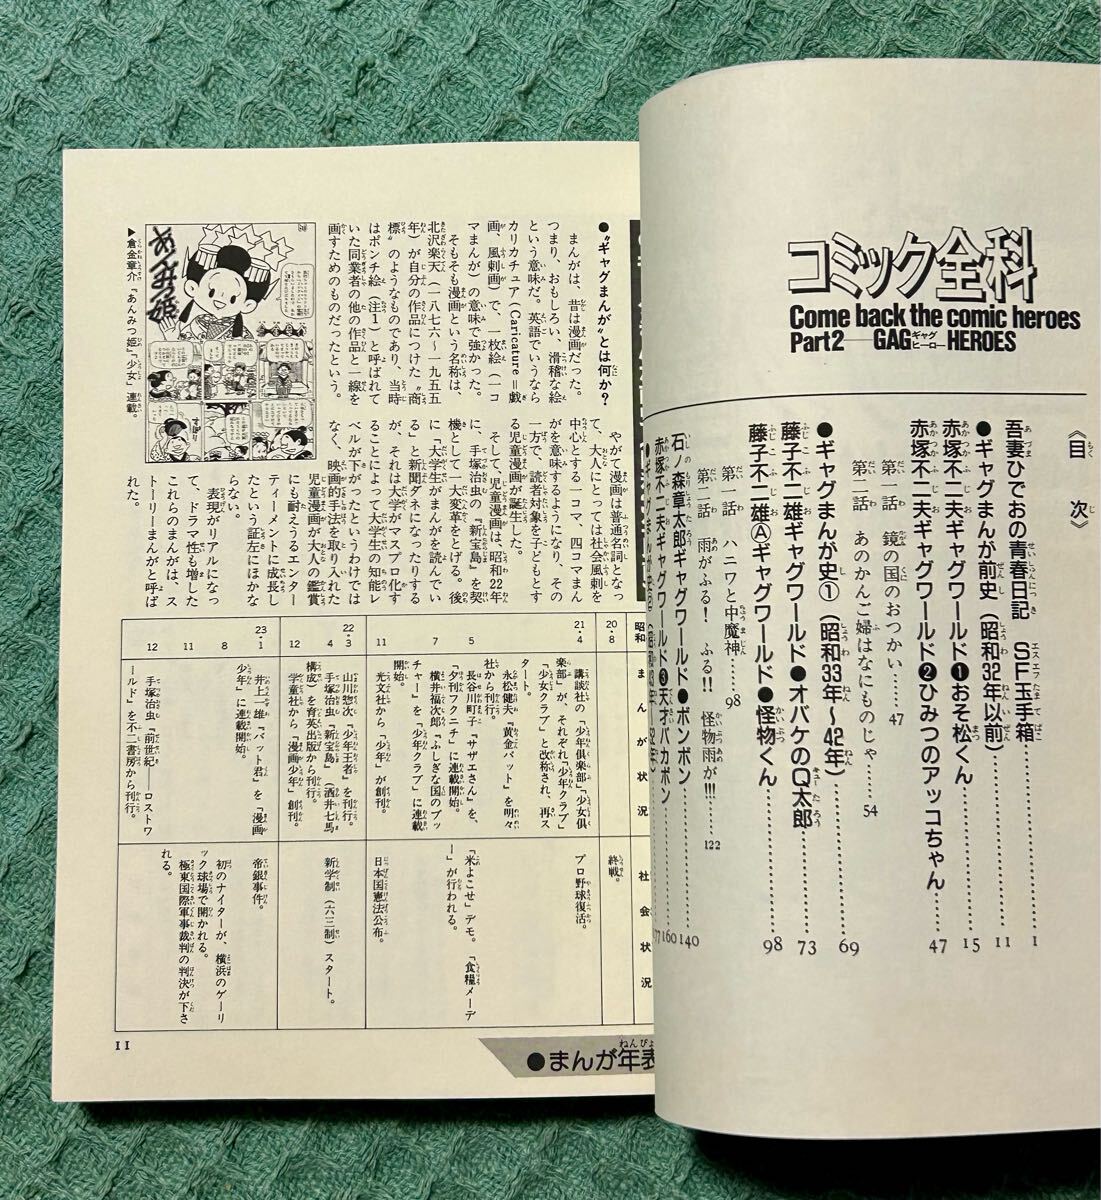 コミック全科
Come back the comic heroes
Part2―GAGギャグヒーローHEROES
《目次》
吾妻ひでおの青春日記　SF玉手箱……1
●ギャグまんが前史（昭和32年以前）……11
赤塚不二夫ギャグワールド❶おそ松くん……15
赤塚不二夫ギャグワールド❷ひみつのアッコちゃん……47
第一話　鏡の国のおつかい……47
第二話　あのかんご婦はなにものじゃ……54
●ギャグまんが史①（昭和33年〜42年）……69
藤子不二雄ギャグワールド●オバケのQ太郎……73
藤子不二雄Ⓐギャグワールド●怪物くん……98
第一話　ハニワと中魔神……98
第二話　雨がふる！　ふる!!　怪物雨が!!!……122
石ノ森章太郎ギャグワールド●ボンボン……140
赤塚不二夫ギャグワールド❸天才バカボン……160
●“ギャグまんが”とは何か？
まんがは、昔は漫画だった。
つまり、おもしろい、滑稽な絵
という意味だ。英語でいうなら
カリカチュア（Caricature＝戯
画、風刺画）で、一枚絵（一コ
ママンが）の意味で強かった。
そもそも漫画という名称は、
北沢楽天（一八七六〜一九五五
年）が自分の作品につけた“商
標”のようなものであり、当時
はポンチ絵（注1）と呼ばれて
いた同業者の他の作品と一線を
画すためのものだったという。
▶倉金章介「あんみつ姫」「少女」連載。
あんみつ姫
やがて漫画は普通名詞となっ
て、大人にとっては社会風刺を
中心とする一コマ、四コマまん
がを意味するようになり、その
一方で、読者対象を子どもとす
る児童漫画が誕生した。
そして、児童漫画は、昭和22年
に、手塚治虫の『新宝島』を契
機として一大変革をとげる。後
に「大学生がまんがを読んでい
る」と新聞ダネになったりする
が、それは大学がマスプロ化す
ることによって大学生の知能レ
ベルが下がったというわけでは
なく、映画的手法を取り入れた
児童漫画が大人の鑑賞
にも耐えうるエンター
ティーメントに成長し
たという証左にほかな
らない。
表現がリアルになっ
て、ドラマ性も増した
これらのまんがは、ス
トーリーまんがと呼ば
れた。
昭和
まんが状況
社会状況
20・8
終戦。
21・4
講談社の「少年倶楽部」「少女倶
楽部」が、それぞれ「少年クラブ」
「少女クラブ」と改称され、再ス
タート。
プロ野球復活。
永松健夫『黄金バット』を明々
社から刊行。
5
長谷川町子『サザエさん』を、
「夕刊フクニチ」に連載開始。
「米よこせ」デモ。「食糧メーデ
ー」が行われる。
7
横井福次郎『ふしぎな国のプッ
チャー』を「少年クラブ」に連載
開始。
11
光文社から「少年」が創刊。
日本国憲法公布。
22・3
山川惣次『少年王者』を刊行。
4
手塚治虫『新宝島』（酒井七馬
構成）を育英出版から刊行。
新学制（六三制）スタート。
12
学童社から「漫画少年」創刊。
23・1
井上一雄『バット君』を「漫画
少年」に連載開始。
帝銀事件。
8
初のナイターが、横浜のゲーリ
ック球場で開かれる。
11
極東国際軍事裁判の判決が下さ
れる。
12
手塚治虫『前世紀――ロストワ
ールド』を不二書房から刊行。
●まんが年表
11